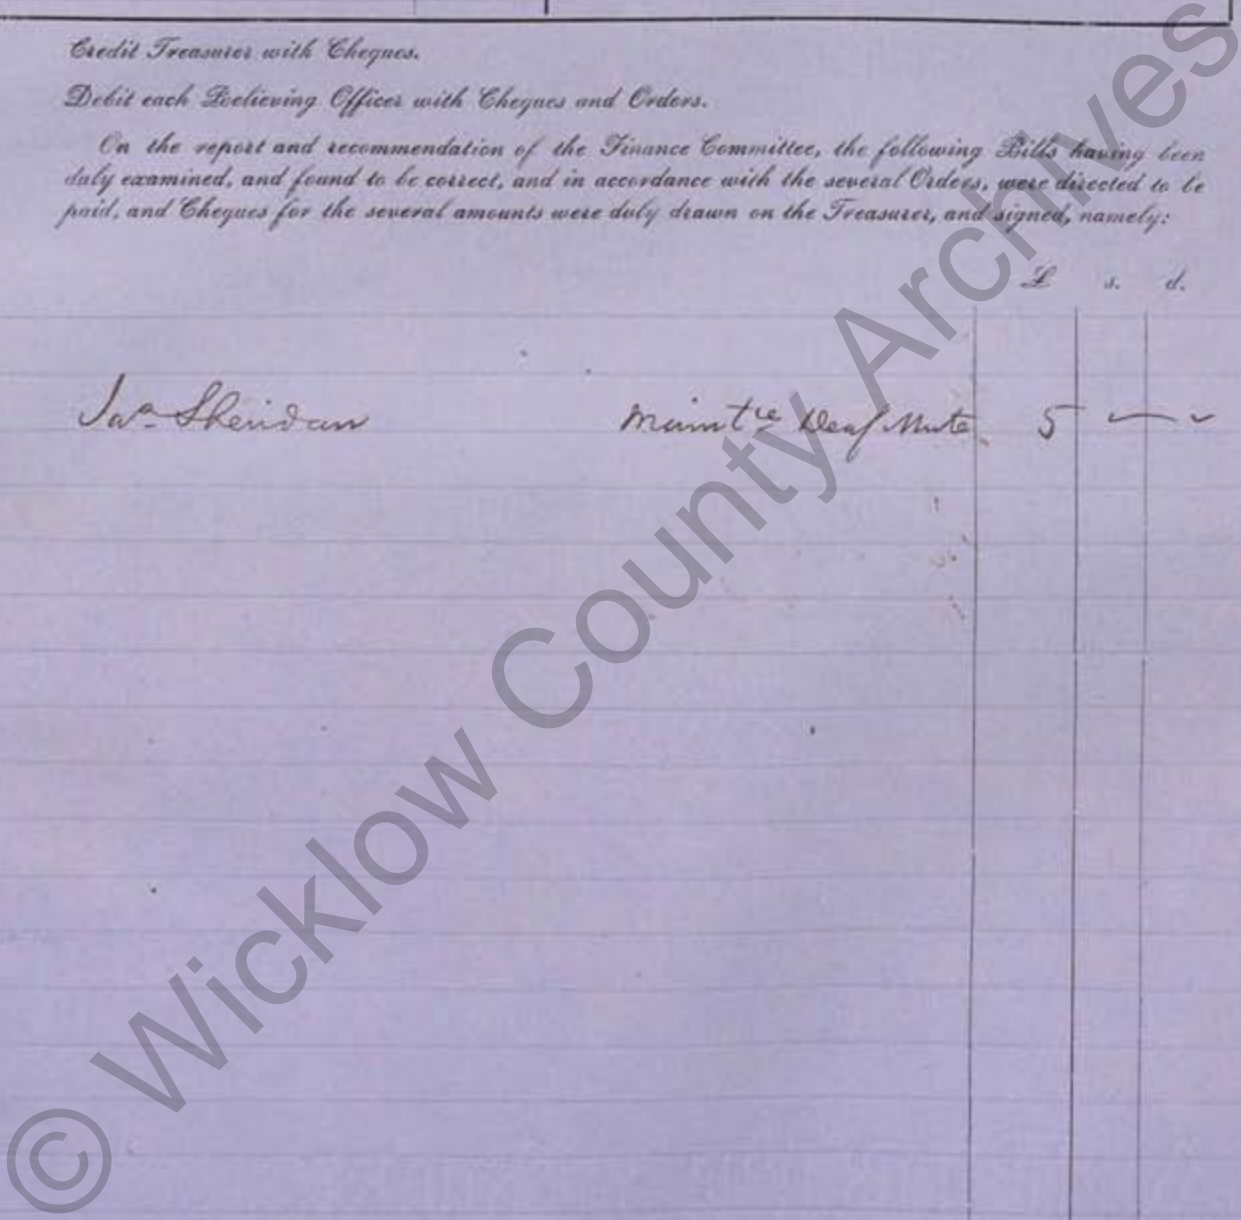 Credit Treasurer with Cheques.
Debit each Relieving Officer with Cheques and Orders.
On the report and recommendation of the Finance Committee, the following Bills having been
duly examined, and found to be correct, and in accordance with the several Orders, were directed to be
paid, and Cheques for the several amounts were duly drawn on the Treasurer, and signed, namely:
£ s. d.
Jas Sheridan Maintce Deaf Mute 5 — -
© Wicklow County Archives